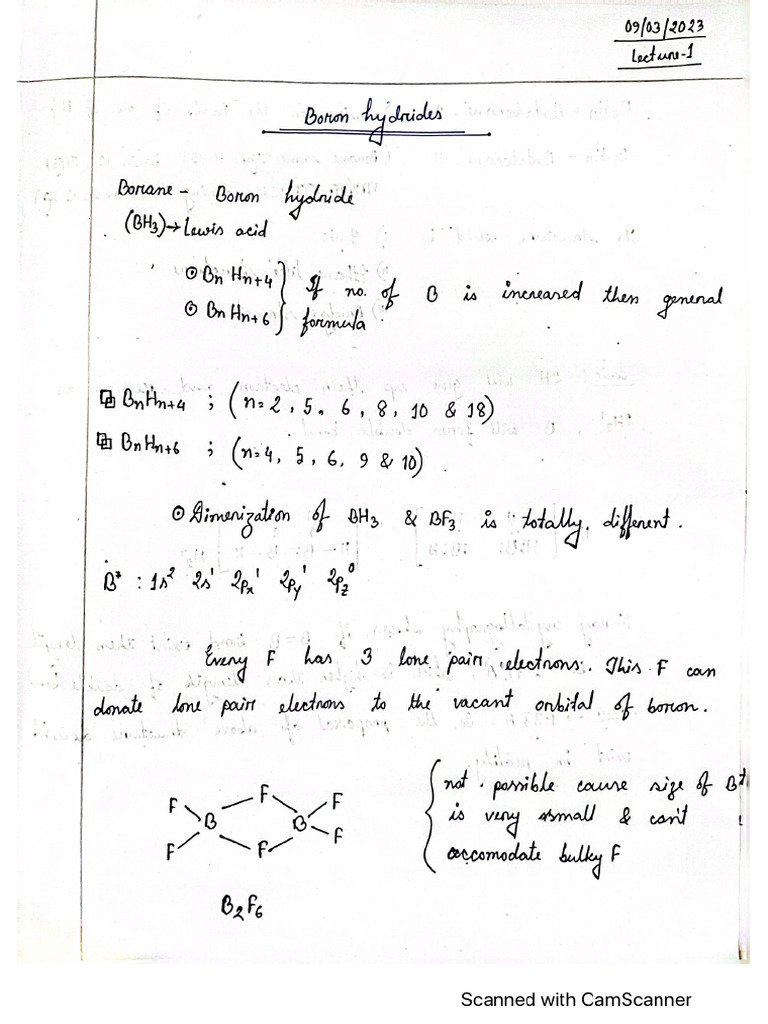 09/03/2023
Lecture-1
Boron hydrides
Borane - Boron hydride
(BH3)→Lewis acid
⊙ BnHn+4 } If no. of B is increased then general
⊙ BnHn+6 } formula
BnHn+4 ; (n=2, 5, 6, 8, 10 & 18)
BnHn+6 ; (n=4, 5, 6, 9 & 10)
⊙ Dimerization of BH3 & BF3 is totally different.
B* : 1s² 2s¹ 2px¹ 2py¹ 2pz⁰
Every F has 3 lone pair electrons. This F can
donate lone pair electrons to the vacant orbital of boron.
F F F
B B
F F F
B2F6
not possible cause size of B
is very small & can't
accomodate bulky F
Scanned with CamScanner